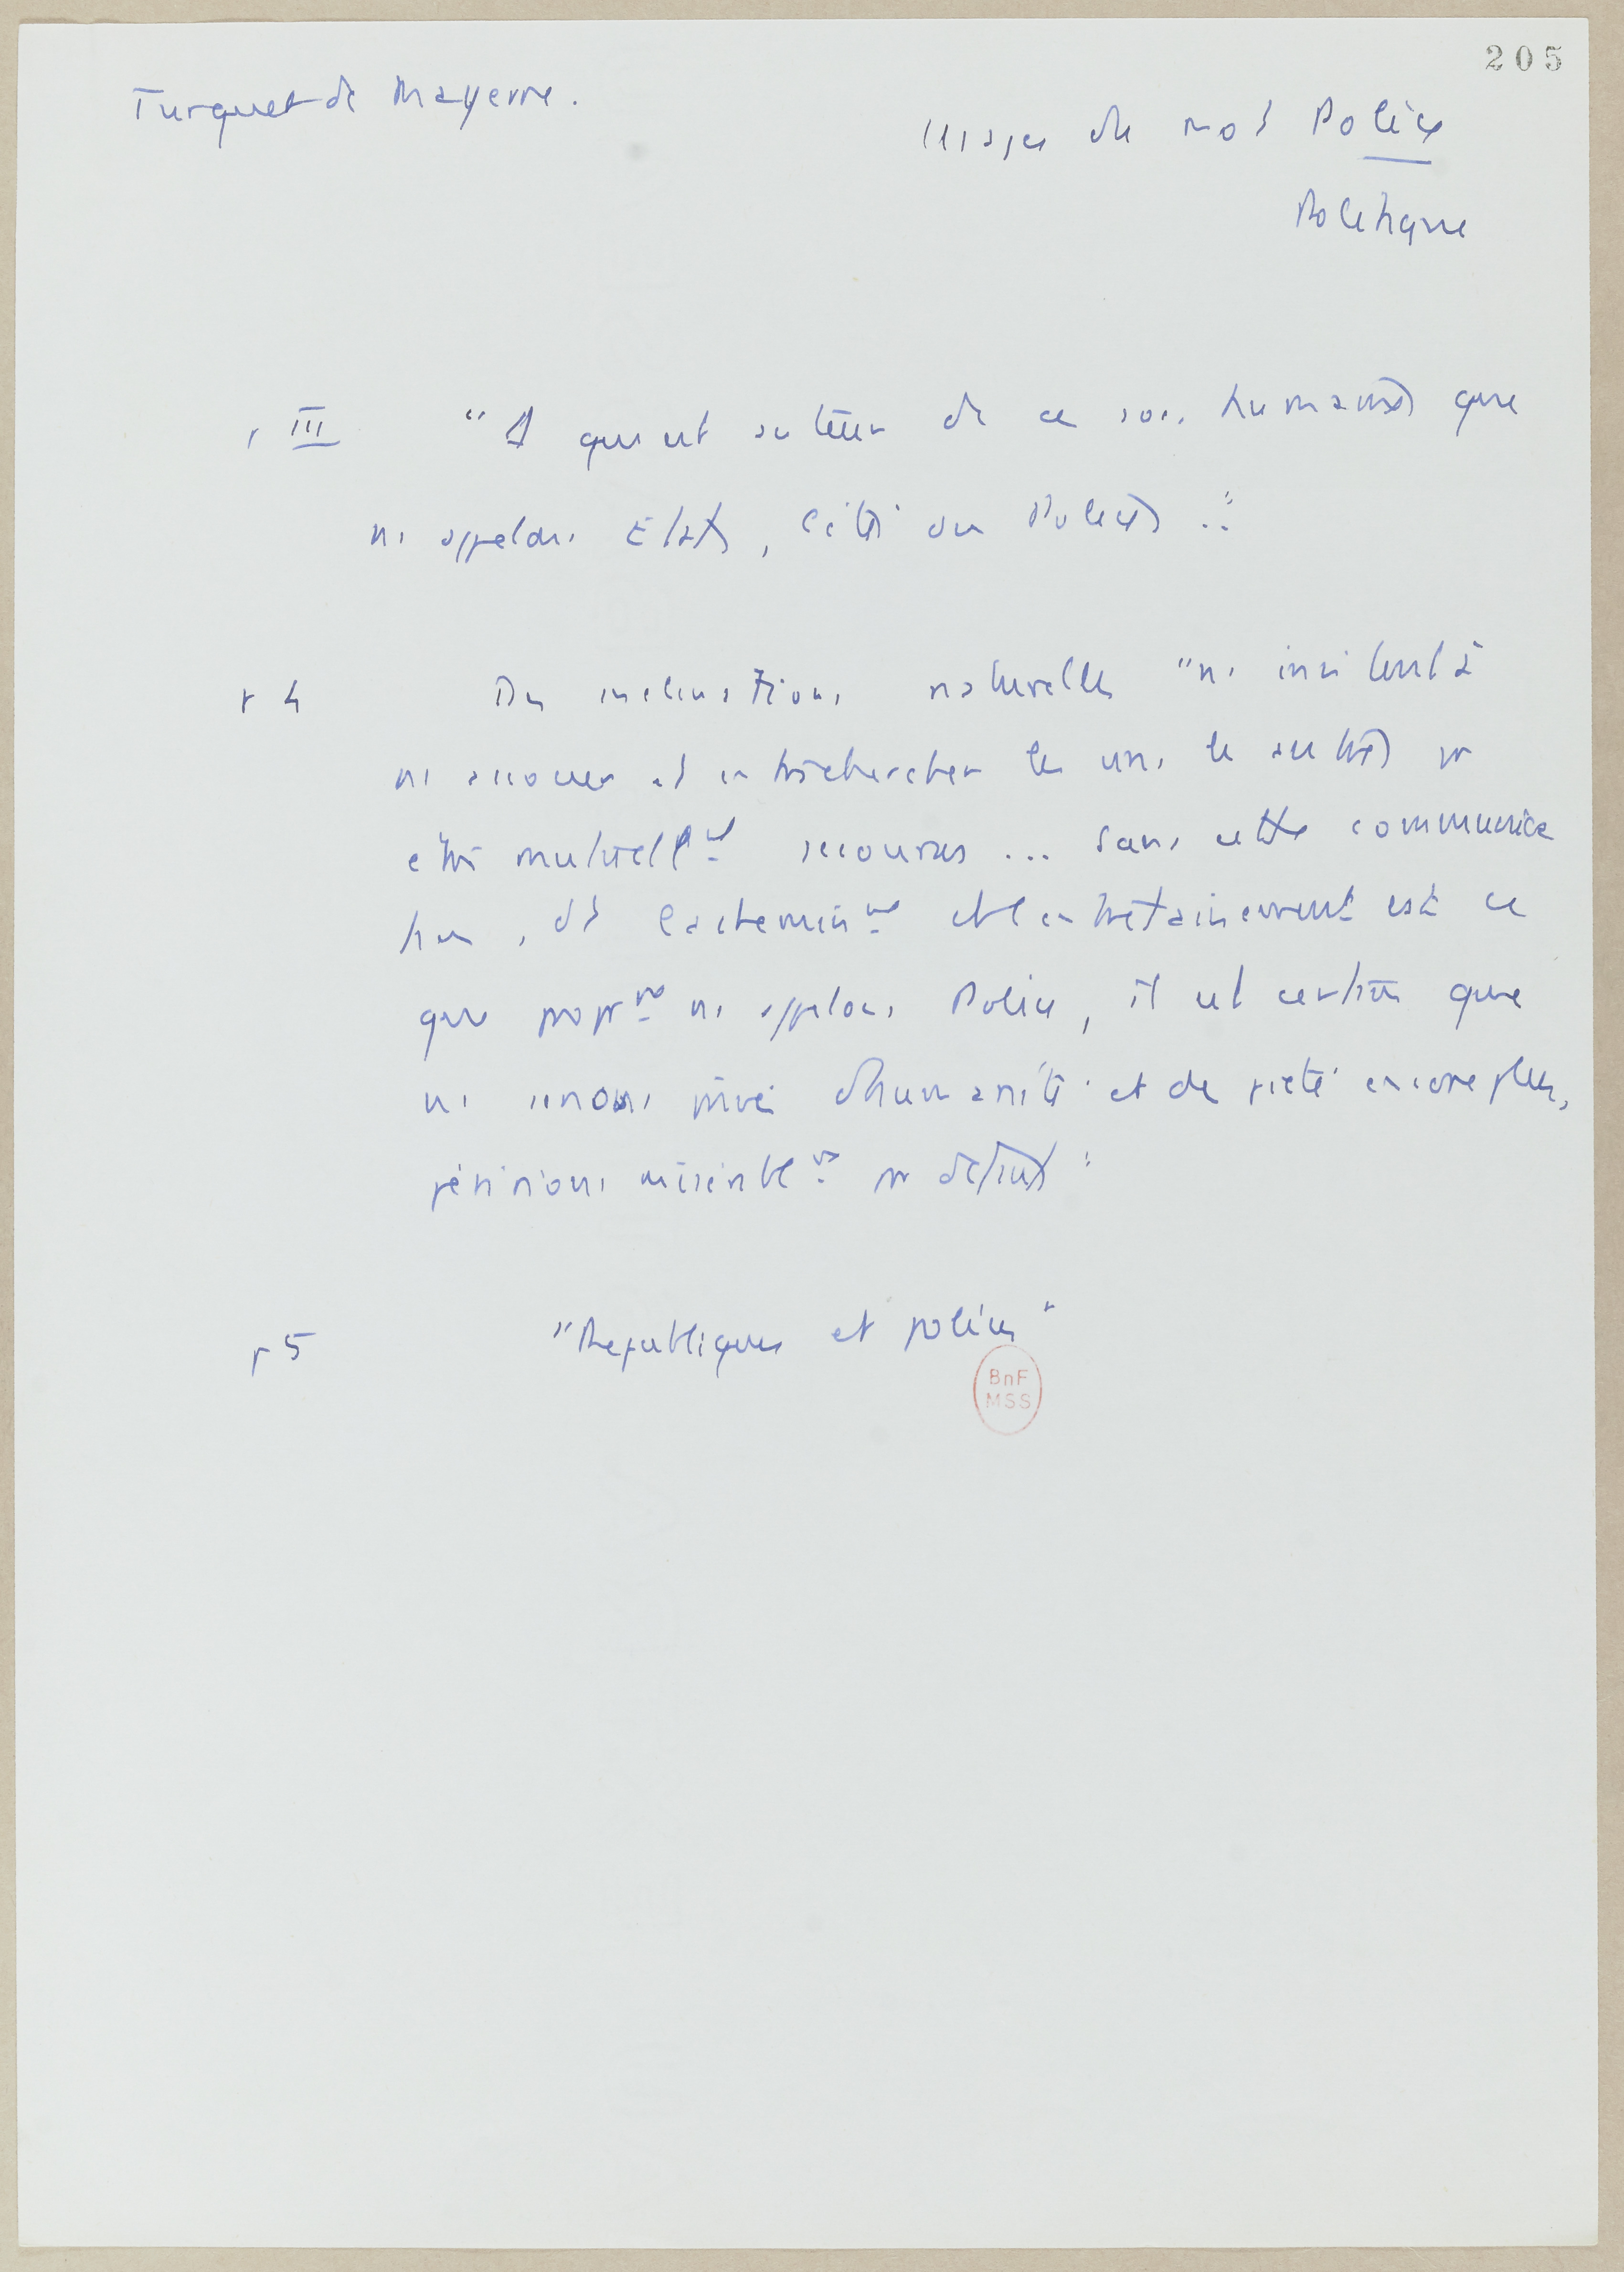 205
Turquet de Mayerne.
Usages du mot Police
Politique
p III "A qui est auteur de ces soc. humaines que
ns appelons Etats, Cités ou Polices ..."
p 4 Des inclinations naturelles "ns incitent à
ns secouer et entrechercher les uns les autres pr
être mutuellt secourus ... Sans cette communica
tion, dt l'acheminmt et l'entretainement est ce
que proprmt ns appelons Police, il est certain que
ns serions privés d'humanité et de piété encore plus,
péririons misérablmt pr défaut"
p 5 "Republiques et polices"
BnF
MSS